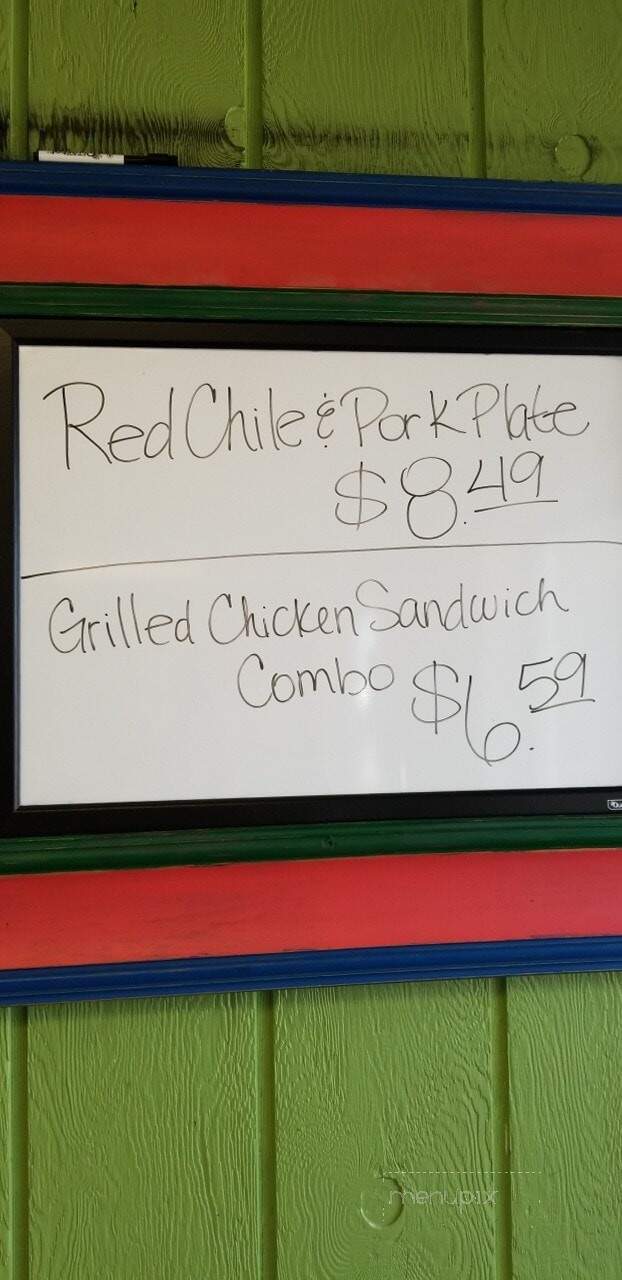 Red Chile & Pork Plate
$8.49
Grilled Chicken Sandwich
Combo $6.59
menupix